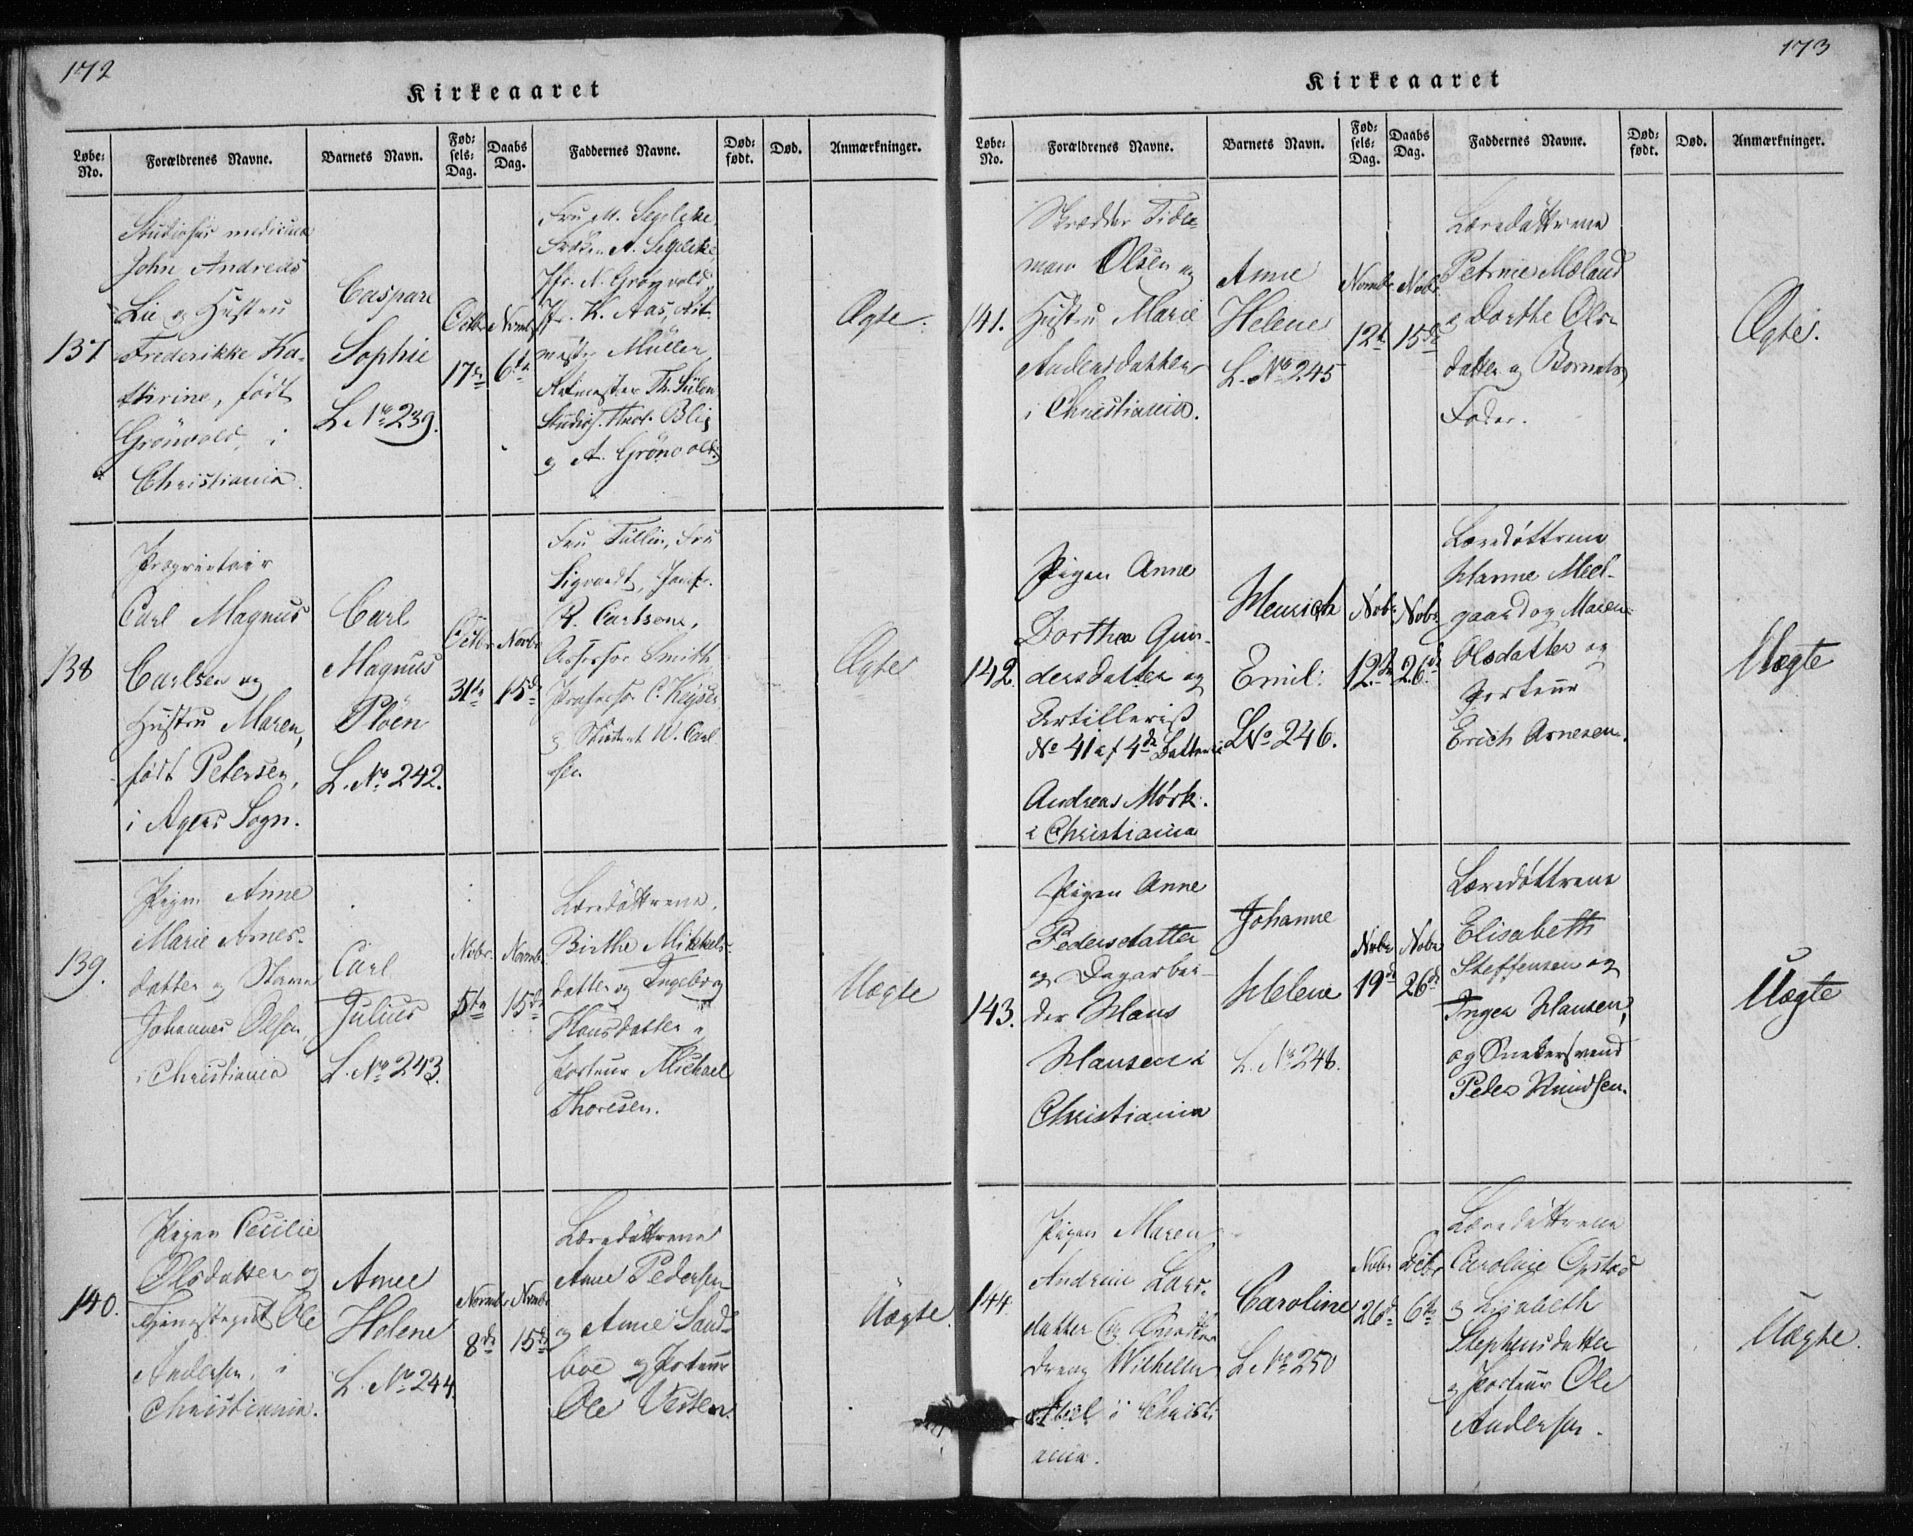 172
Kirkeaaret
Løbe-
No.
Forældrenes Navne.
Barnets Navn.
Fød-
sels-
Dag.
Daabs
Dag.
Faddernes Navne.
Død-
født.
Død.
Anmærkninger.
137
Studiosus medicinæ
John Andreas
Lie og Hustru
Frederikke Ka-
thrine, født
Grönvold, i
Christiania.
Caspare
Sophie
L. No 239.
Octbr
17de
Novbr
6te
Fru M. Segelcke,
Frøken A. Segelcke,
Jfr. N. Grönvold,
Jfr. K. Aas, Rit-
mester Müller,
Studios. Blix
og A. Grönvold
Ægte.
138
Proprietair
Carl Magnus
Carlsen og
Hustru Maren,
født Petersen,
i Agers Sogn.
Carl
Magnus
Plöen
L. No. 242.
Octbr
31te
Novbr
15de
Fru Tullin, Fru
Sigvardt, Jomfr.
P. Carlsen,
Assessor Smith
Professor C. Keyser
og Student W. Carl-
sen
Ægte
139.
Pigen Anne
Marie Arnes-
datter og
Johannes Olsen,
i Christiania
Carl
Julius
L. No 243.
Nobr.
5te
Novmb.
15de
Læredöttrene,
Birthe Mikkels-
datter og Ingeborg
Hansdatter og
Porteur Michael
Thoresen.
Uægte
140.
Pigen Cecilie
Olsdatter og
Ole
Andersen, i
Christiania.
Anne
Helene
L. No 244
Novmbr
8de
Novmbr
15de
Læredöttrene
Anne Pedersen
og Anne Sand-
boe og Porteur
Ole Vesten
Uægte.
173
Kirkeaaret
Løbe-
No.
Forældrenes Navne.
Barnets Navn.
Fød-
sels-
Dag.
Daabs
Dag.
Faddernes Navne.
Død-
født.
Død.
Anmærkninger.
141.
Skrædder Tide-
man Olsen og
Hustru Marie
Andersdatter
i Christiania.
Anne
Helene
L. No 245
Novmbr
12te
Nobr
15de
Læredöttrene
Petrine Mæland
og Dorthe Ols-
datter og Barnets
Fader.
Ægte.
142.
Pigen Anne
Dorthea Gun-
dersdatter og
Artillerist
No 41 af 4de Batterie
Andreas Mørk.
i Christiania
Henrich
Emil.
L No 246.
Nobr
12te
Nobr
26de
Læredøttrene
Hanne Miel-
gaard og Maren
Olsdatter og
Porteur
Erich Arnesen.
Uægte
143.
Pigen Anne
Pedersdatter
og Dagarbei-
der Hans
Hansen i
Christiania
Johanne
Helene
L. No 248.
Nobr
19de
Nobr
26de
Læredøttrene
Elisabeth
Steffensen og
Inger Hansen,
og Snekersvend
Peder Knudsen.
Uægte
144.
Pigen Maren
Andrine Lars-
datter og
dreng Wilhelm
Abel i Christi-
ania.
Caroline
L No 250
Nobr
26de
Decbr
6te
Læredöttrene
Caroline Opstad
og Lisabeth
Stephensdatter
og Porteur Ole
Andersen.
Uægte.